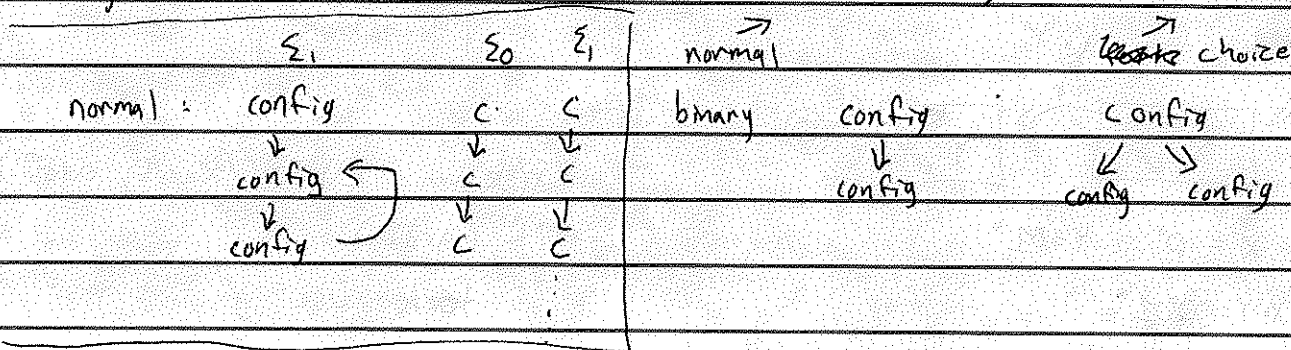 Σ₁ Σ₀ Σ₁ normal choice
normal: config c c binary config config
config c c config config config
config c c